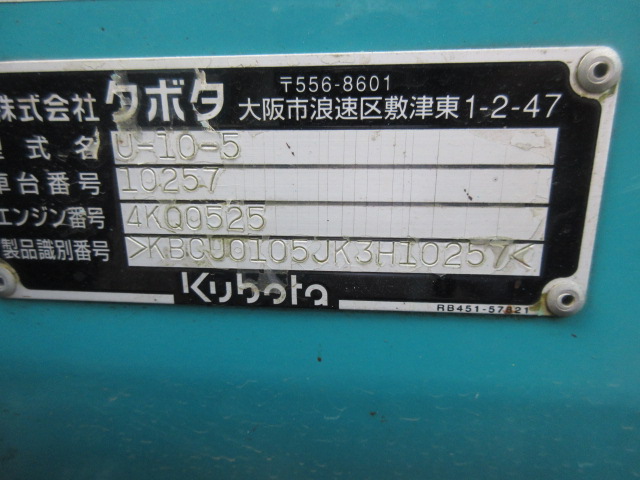 〒556-8601
株式会社 クボタ 大阪市浪速区敷津東1-2-47
型式名 U-10-5
車台番号 10257
エンジン番号 4KQ0525
製品識別番号 >KBCU0105JK3H10257<
Kubota
RB451-57821